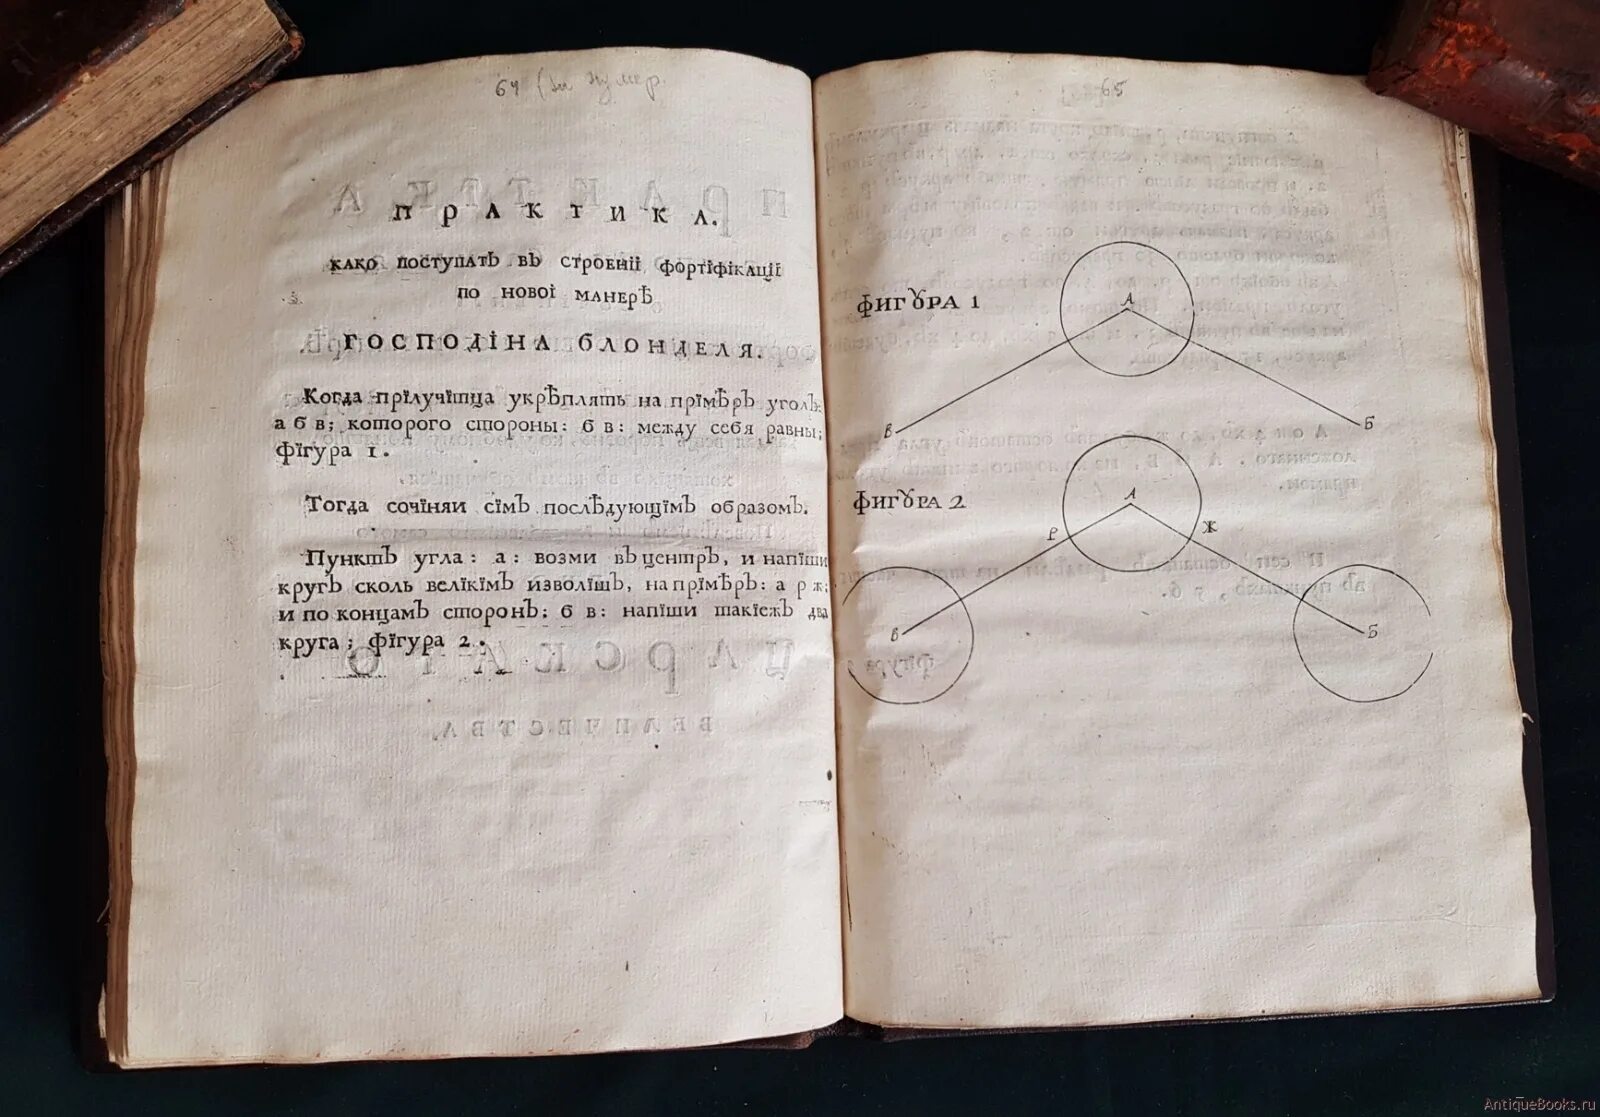 64
ПРАКТИКА.
КАКО ПОСТУПАТЬ ВЪ СТРОЕНІІ ФОРТІФІКАЦІІ
ПО НОВОІ МАНЕРѢ
ГОСПОДІНА БЛОНДЕЛЯ.
Когда прїлучїтца укрѣплять на прїмѣръ уголъ:
а б в; которого стороны: б в: между себя равны;
фїгура 1.
Тогда сочїняи сїмъ послѣдующїмъ образомъ.
Пунктъ угла: а: возми въ центръ, и напїши
кругъ сколь велїкїмъ изволїшъ, на прїмѣръ: а р ж;
и по концамъ сторонъ: б в: напїши такїежъ два
круга; фїгура 2.
65
ФИГУРА 1
А
В
Б
ФИГУРА 2
А
Р
Ж
В
Б
AntiqueBooks.ru